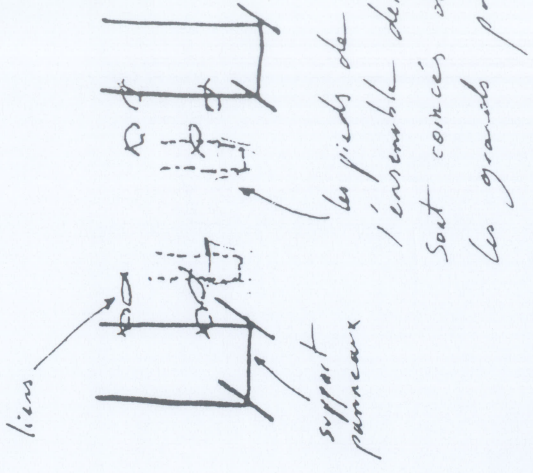 liens
support
panneaux
les pieds de
l'ensemble de
Sont coincés
les grands